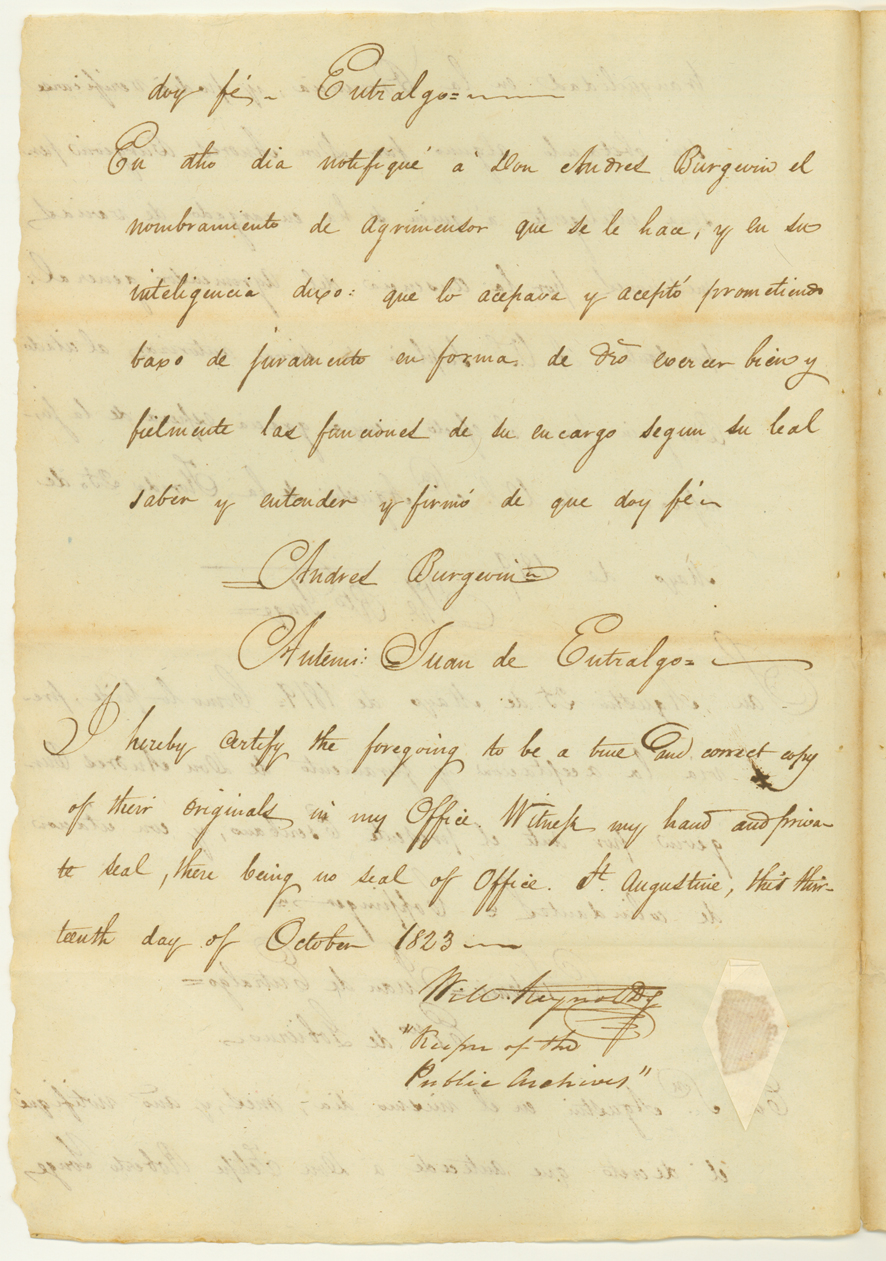 doy fé ~ Entralgo =
En dho dia notifiqué à Don Andres Burgevin el
nombramiento de Agrimensor que se le hace, y en su
inteligencia dixo: que lo acepava y aceptó prometiendo
baxo de juramento en forma de dr̃o exercer bien y
fielmente las funciones de su encargo segun su leal
saber y entender y firmó de que doy fé ~
Andres Burgevin =
Antemi: Juan de Entralgo =
I hereby certify the foregoing to be a true and correct copy
of their originals in my Office. Witness my hand and priva-
te seal, there being no seal of Office. St. Augustine, this thir-
teenth day of October 1823 ~
Will Reynolds
"Keeper of the
Public Archives"